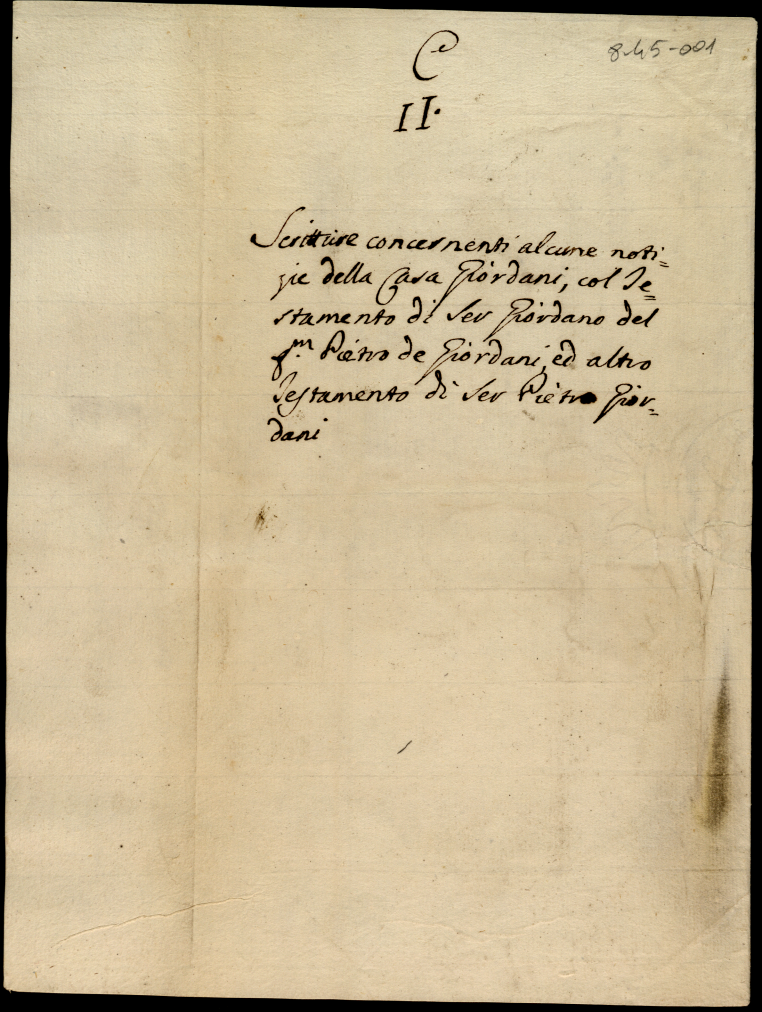 C
8-45-001
II.
Scritture concernenti alcune noti=
zie della Casa Giordani, col Te=
stamento di Ser Giordano del
q.m Pietro de Giordani, ed altro
Testamento di Ser Pietro Gior=
dani